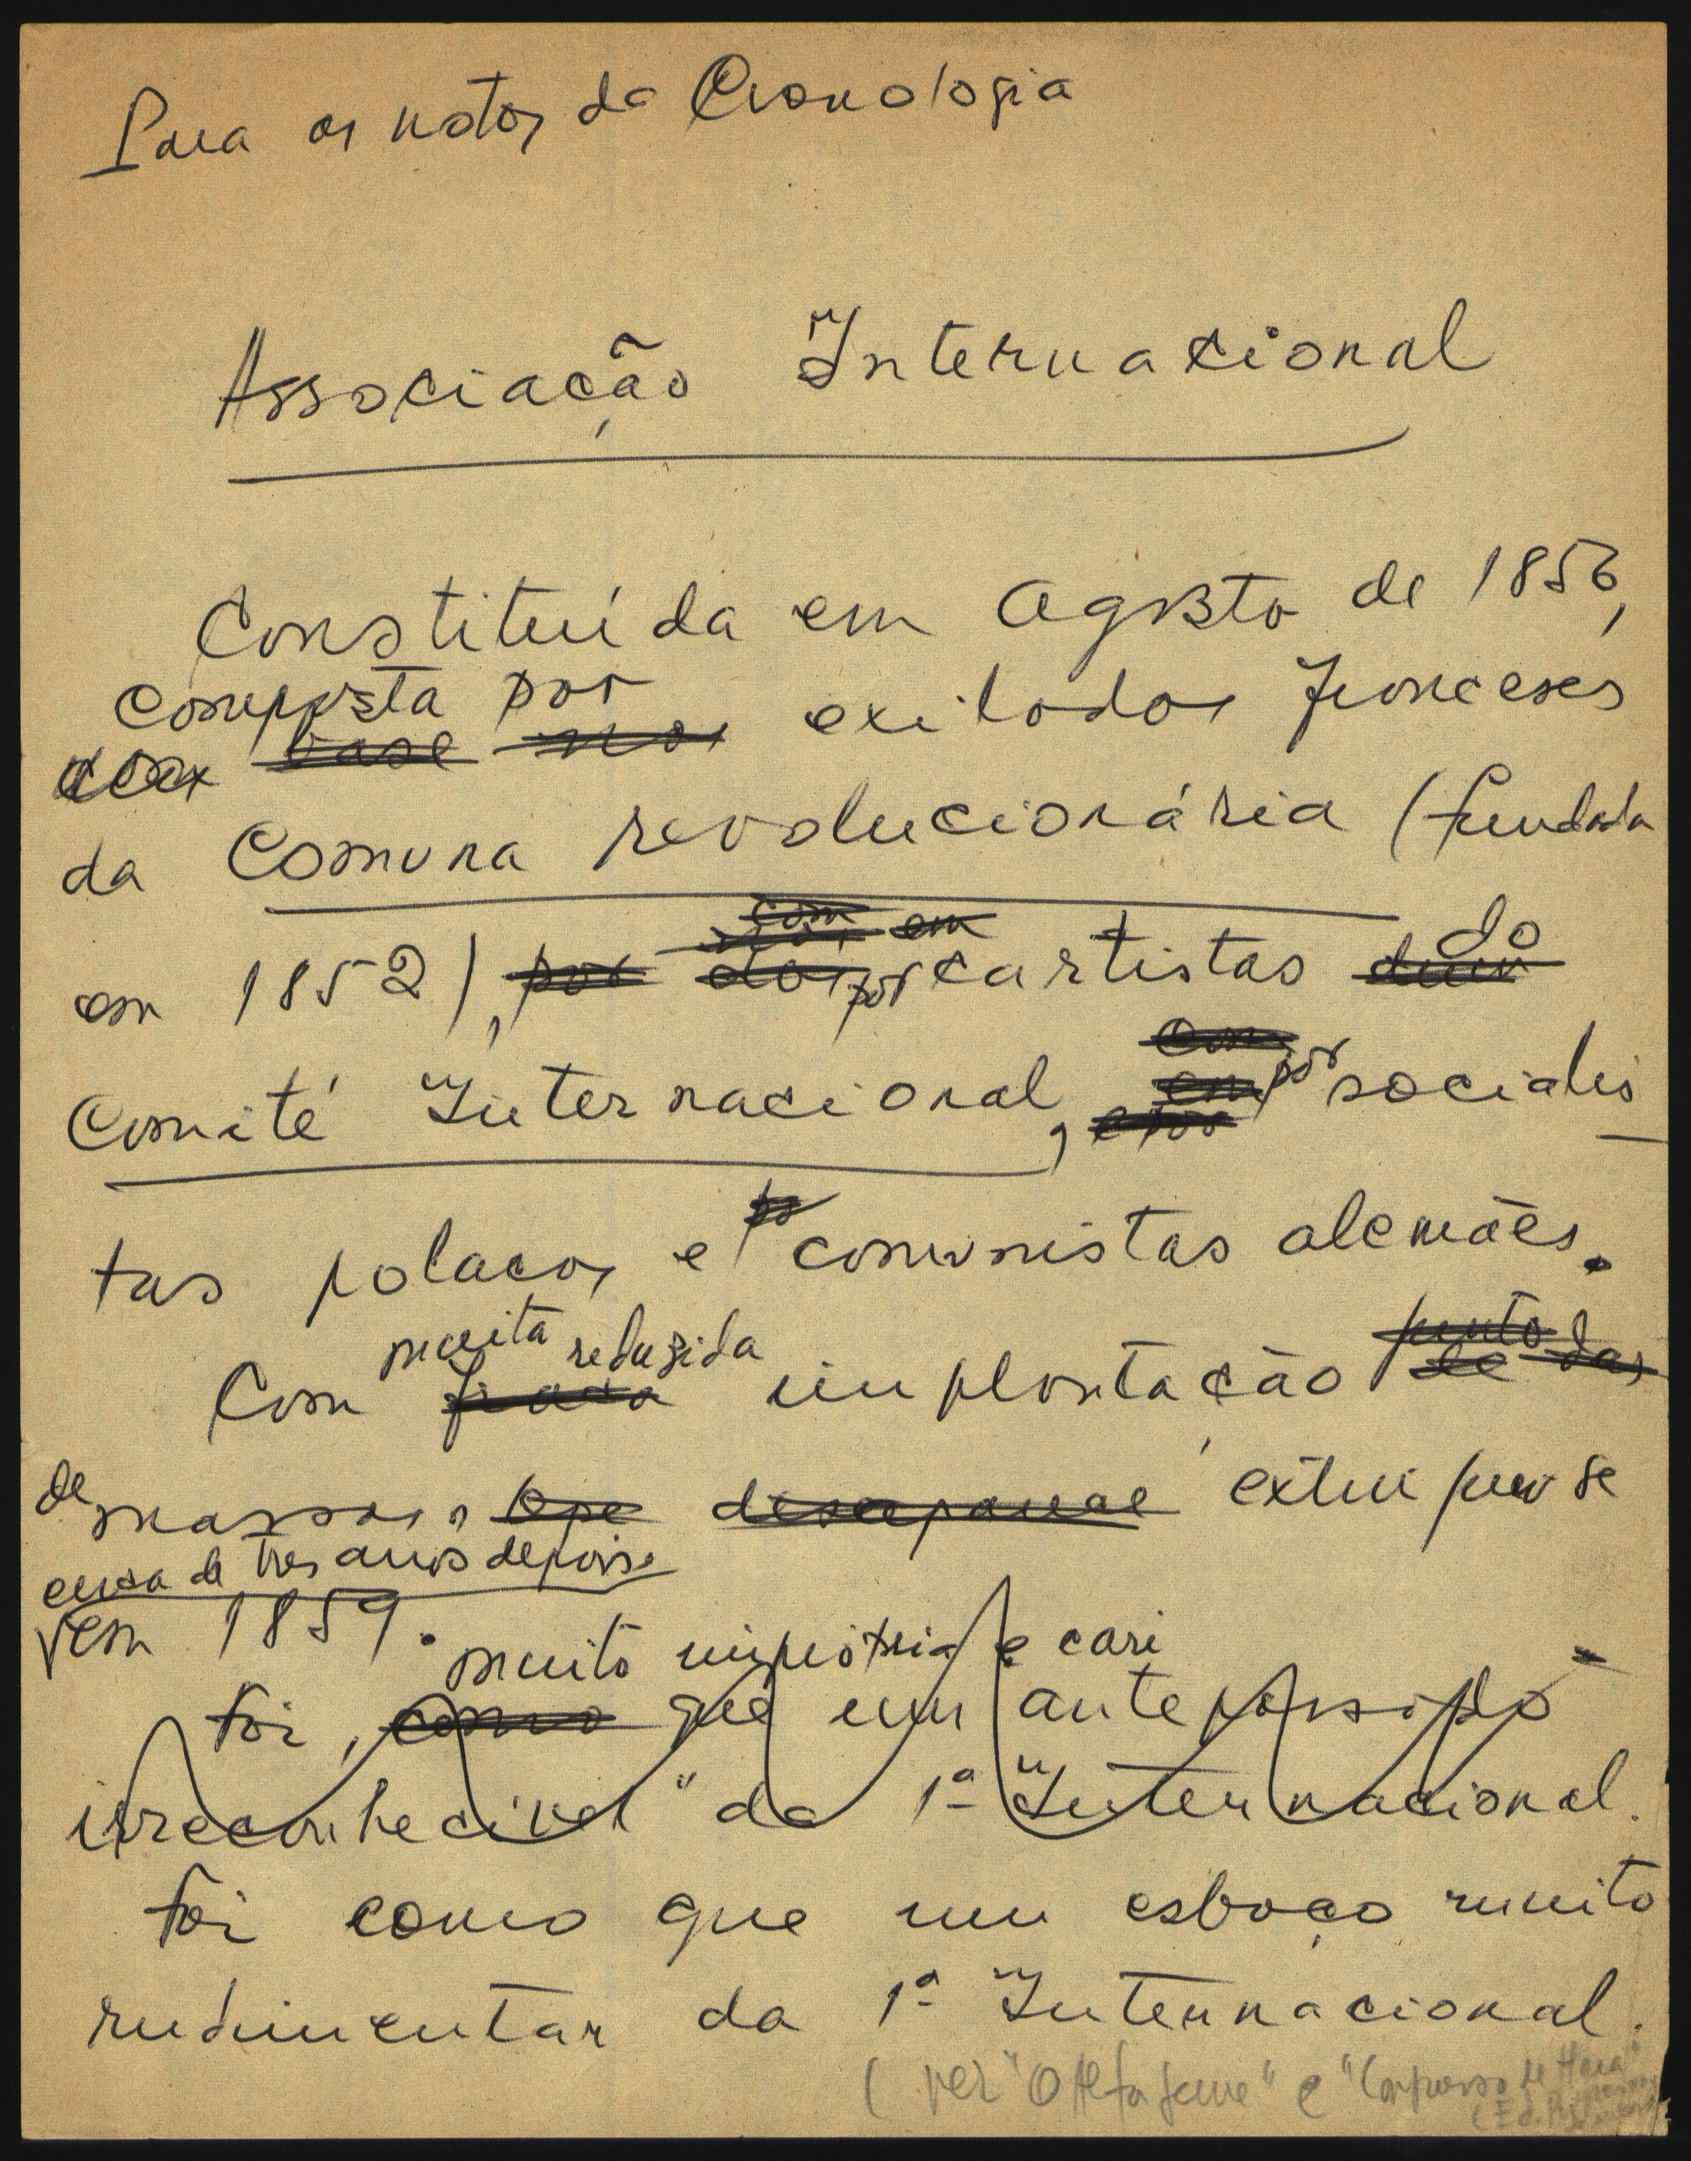 Para as notas da Cronologia
Associação Internacional
Constituída em Agosto de 1856,
composta por
base nos exilados franceses
da Comuna revolucionária (fundada
com em do
em 1852), por dos por cartistas
com
Comité Internacional, em por socialis-
e por
tas polacos e comunistas alemães.
muita reduzida junto
Com fraca implantação de das
de massas, que desaparece extinguiu-se
cerca de três anos depois.
em 1859.
muito impróprio e cari
Foi, como que um antepassado
irreconhecível" da 1ª Internacional.
Foi como que um esboço muito
rudimentar da 1ª Internacional.
(ver "O Alfa" e "Congresso de Haia"
(Ed.